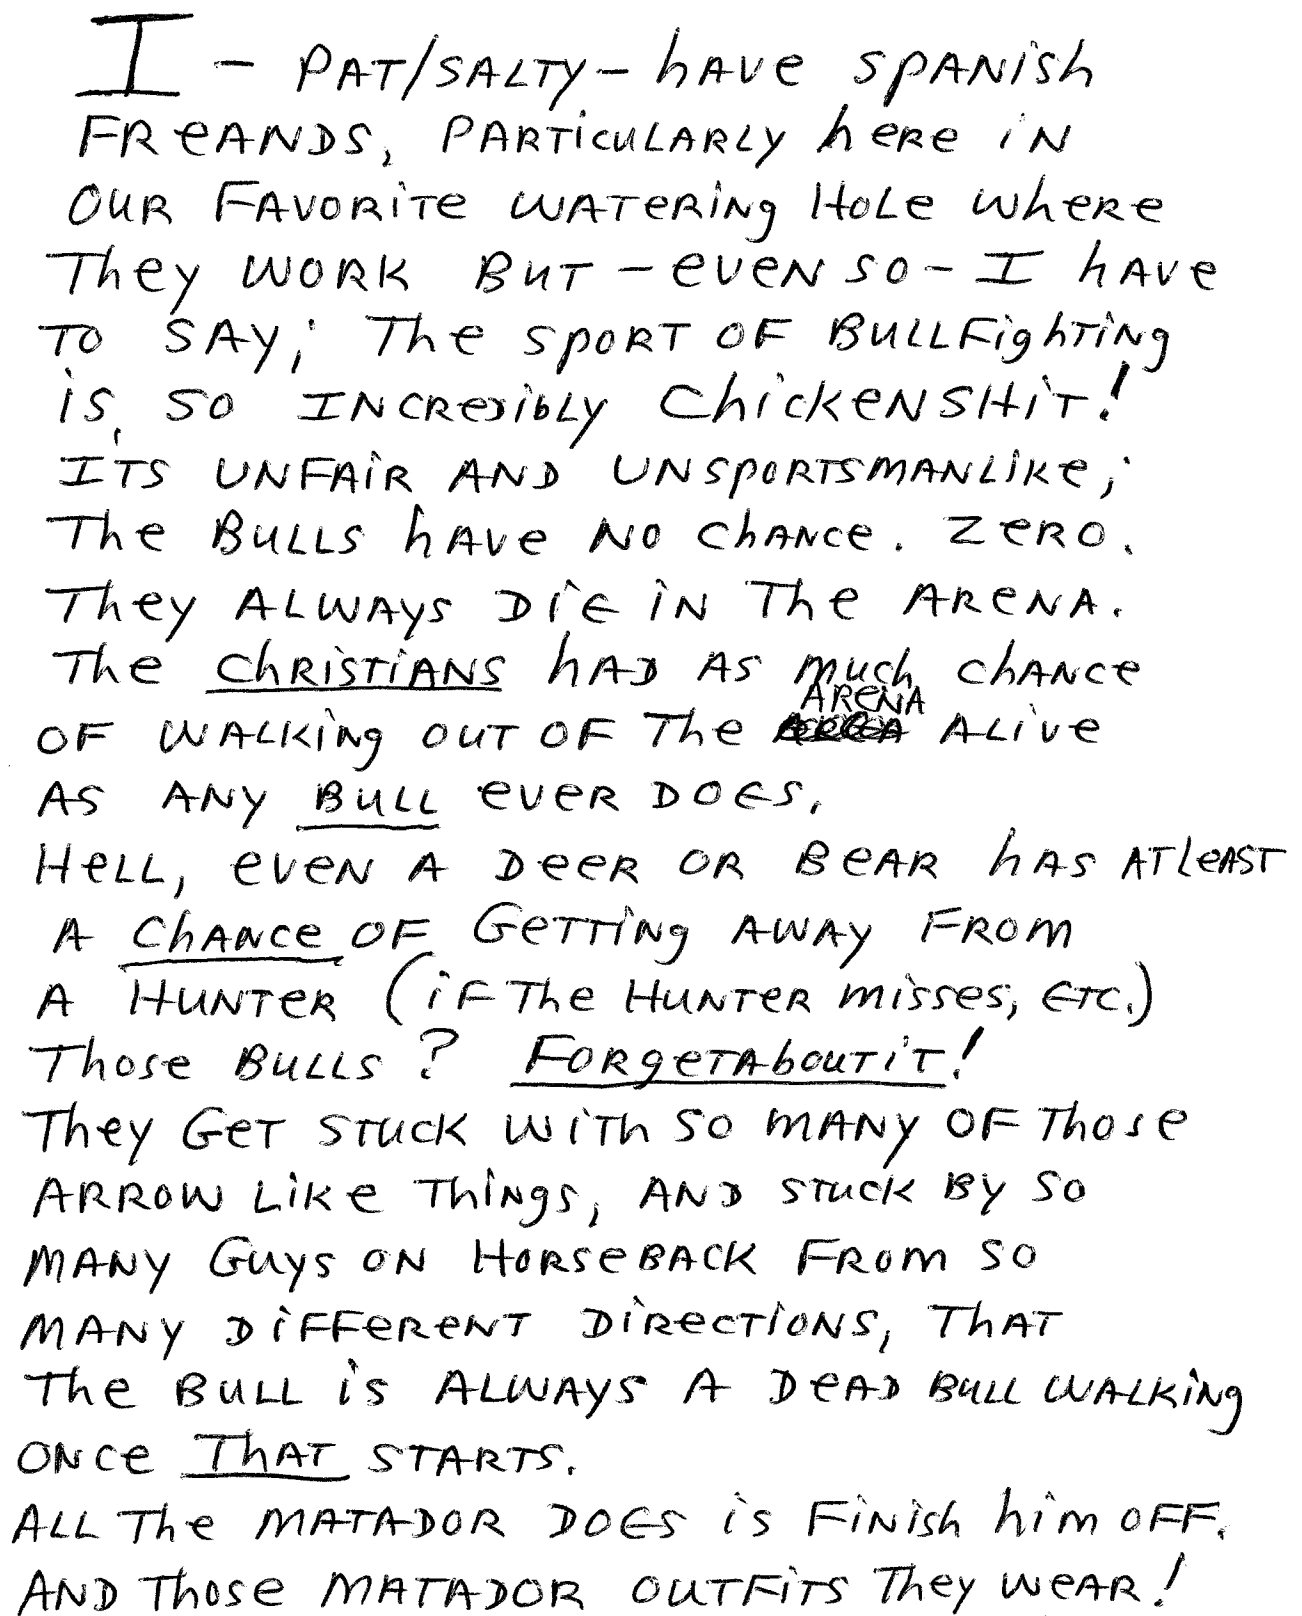 I - PAT/SALTY - hAVe SPANish
FReANDS, PARTicuLARLy heRe iN
OUR FAVORiTe WATeRiNg HoLe WheRe
They WORK BUT - eVeN SO - I hAVe
TO SAY; The SPORT OF BULLFighTiNg
is, SO INCReDibLy ChickeNSHiT!
IT'S UNFAiR AND UNSPORTSMANLiKe;
The BULLS hAVe NO ChANce. ZeRO.
They ALWAYS DiE iN The AReNA.
The ChRiSTiANS hAD AS much chANce
OF WALKiNg OUT OF The AReNA ALiVe
AS ANy BULL eVeR DOES.
HeLL, eVeN A DeeR OR BeAR hAS ATLeAST
A ChANce OF GeTTiNg AWAY FROM
A HUNTeR (iF The HUNTeR misses, ETC.)
Those BULLS? FORgeTAbouTiT!
They GeT STUCK WiTh SO MANy OF Those
ARROW LiKe ThiNgs, AND STUCK By SO
MANy Guys ON HORSeBACK FROM SO
MANy DiFFeReNT DiRecTiONS, ThAT
The BULL is ALWAYS A DeAD BULL WALKiNg
ONce ThAT STARTS.
ALL The MATADOR DOES is FiNish him OFF.
AND Those MATADOR OUTFiTS They WeAR!